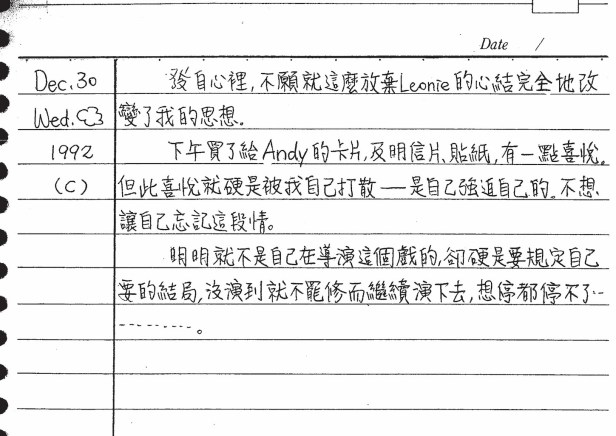 Date /
Dec. 30 發自心裡,不願就這麼放棄Leonie的心結完全地改
Wed. 變了我的思想。
1992 下午買了給Andy的卡片,及明信片、貼紙,有一點喜悅。
(C) 但此喜悅就硬是被我自己打散——是自己強迫自己的。不想
讓自己忘記這段情。
明明就不是自己在導演這個戲的,卻硬是要規定自己
要的結局,沒演到就不罷修而繼續演下去,想停都停不了--
---------。